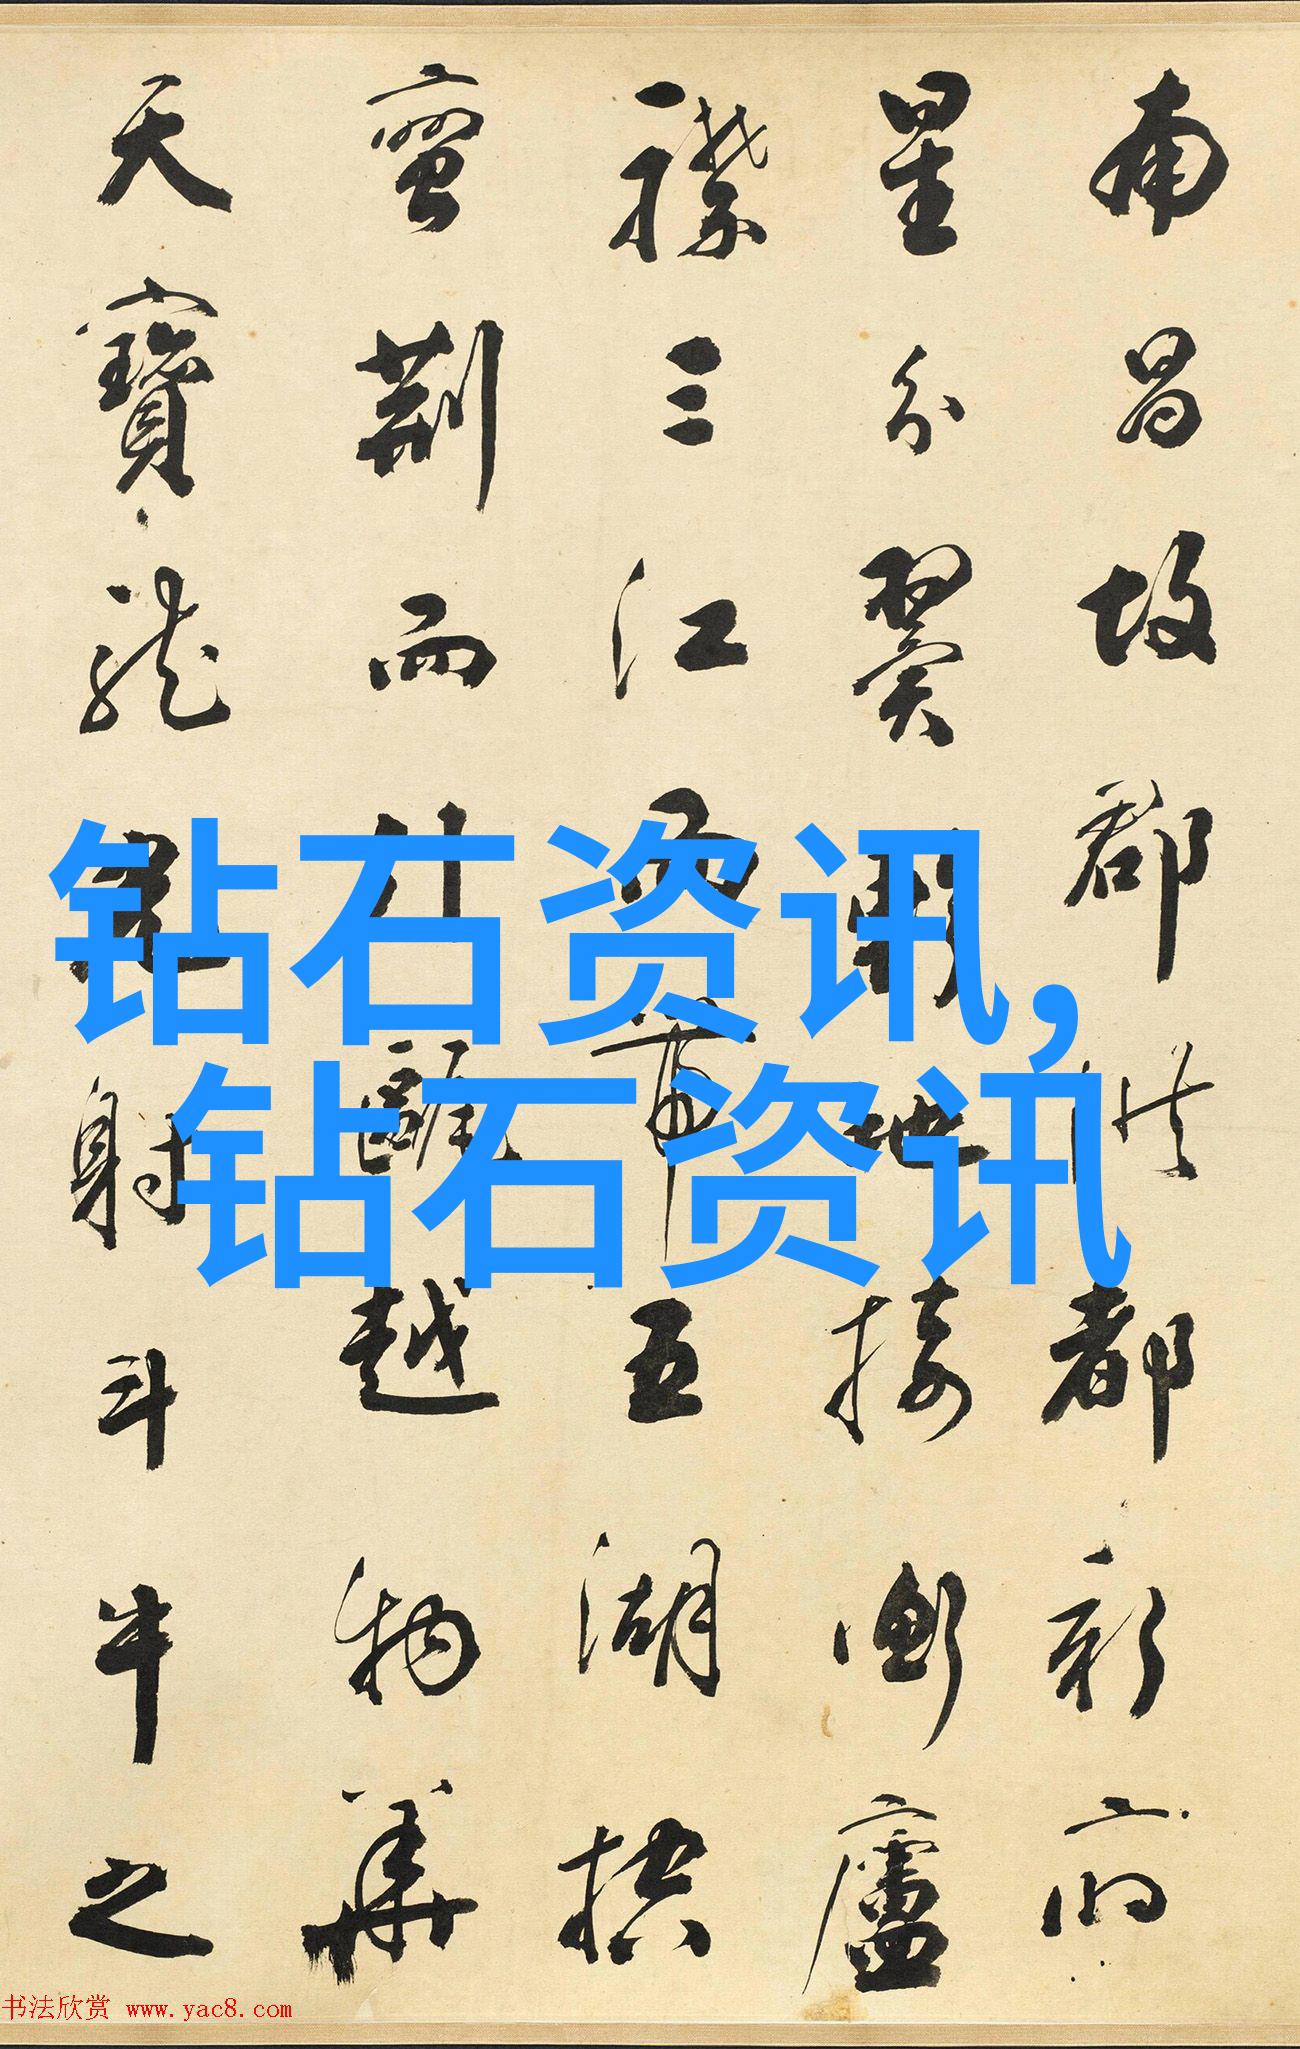 南昌故郡洪都新府
星分翼軫地接衡廬
襟三江而帶五湖控
蠻荊而引甌越物華
天寶龍光射斗牛之
钻石资讯,
钻石资讯
书法欣赏 www.yac8.com